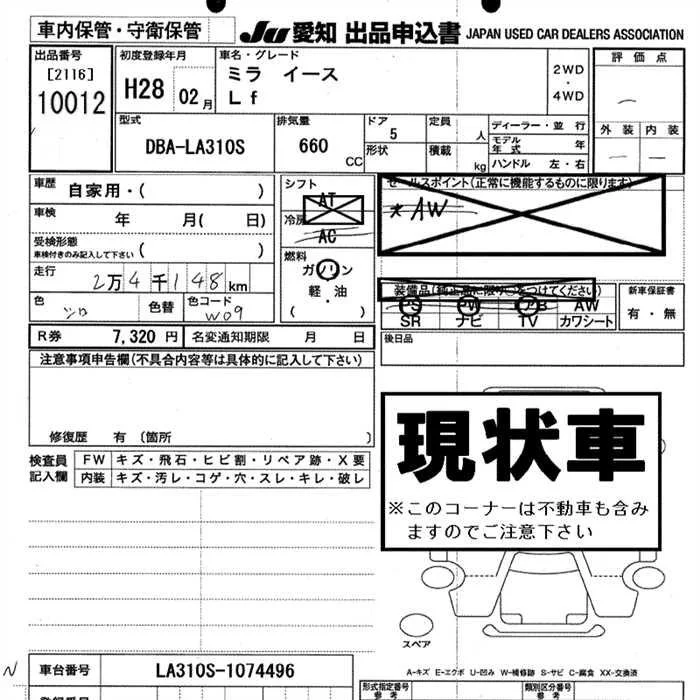 車内保管・守衛保管
JU 愛知 出品申込書 JAPAN USED CAR DEALERS ASSOCIATION
出品番号
[2116]
10012
初度登録年月
H28 02月
車名・グレード
ミラ イース
Lf
2WD
・
4WD
評価点
―
外装 内装
― ―
型式
DBA-LA310S
排気量
660 CC
ドア
5
定員
人
形状
積載
kg
ディーラー・並行
モデル年式 年
ハンドル 左・右
車歴 自家用・( )
車検 年 月( 日)
受検形態
車検付きのみ記入して下さい ( )
走行 2万4千148km
色 シロ
色替
色コード W09
シフト
AT
冷房
AC
燃料
ガソリン
軽・油
( )
セールスポイント(正常に機能するものに限ります)
*AW
装備品(純正品に限り○をつけてください)
PS PW AB AW
SR ナビ TV カワシート
新車保証書
有・無
R券 7,320円 名変通知期限 月 日
後日品
注意事項申告欄(不具合内容等は具体的に記入して下さい)
修復歴 有 〔箇所 〕
検査員記入欄
FW キズ・飛石・ヒビ割・リペア跡・X要
内装 キズ・汚レ・コゲ・穴・スレ・キレ・破レ
現状車
※このコーナーは不動車も含み
ますのでご注意下さい
スペア
A-キズ E-エクボ U-凹み W-補修跡 S-サビ C-腐食 XX-交換済
N
車台番号 LA310S-1074496
形式指定番号
参考
類別区分番号
参考